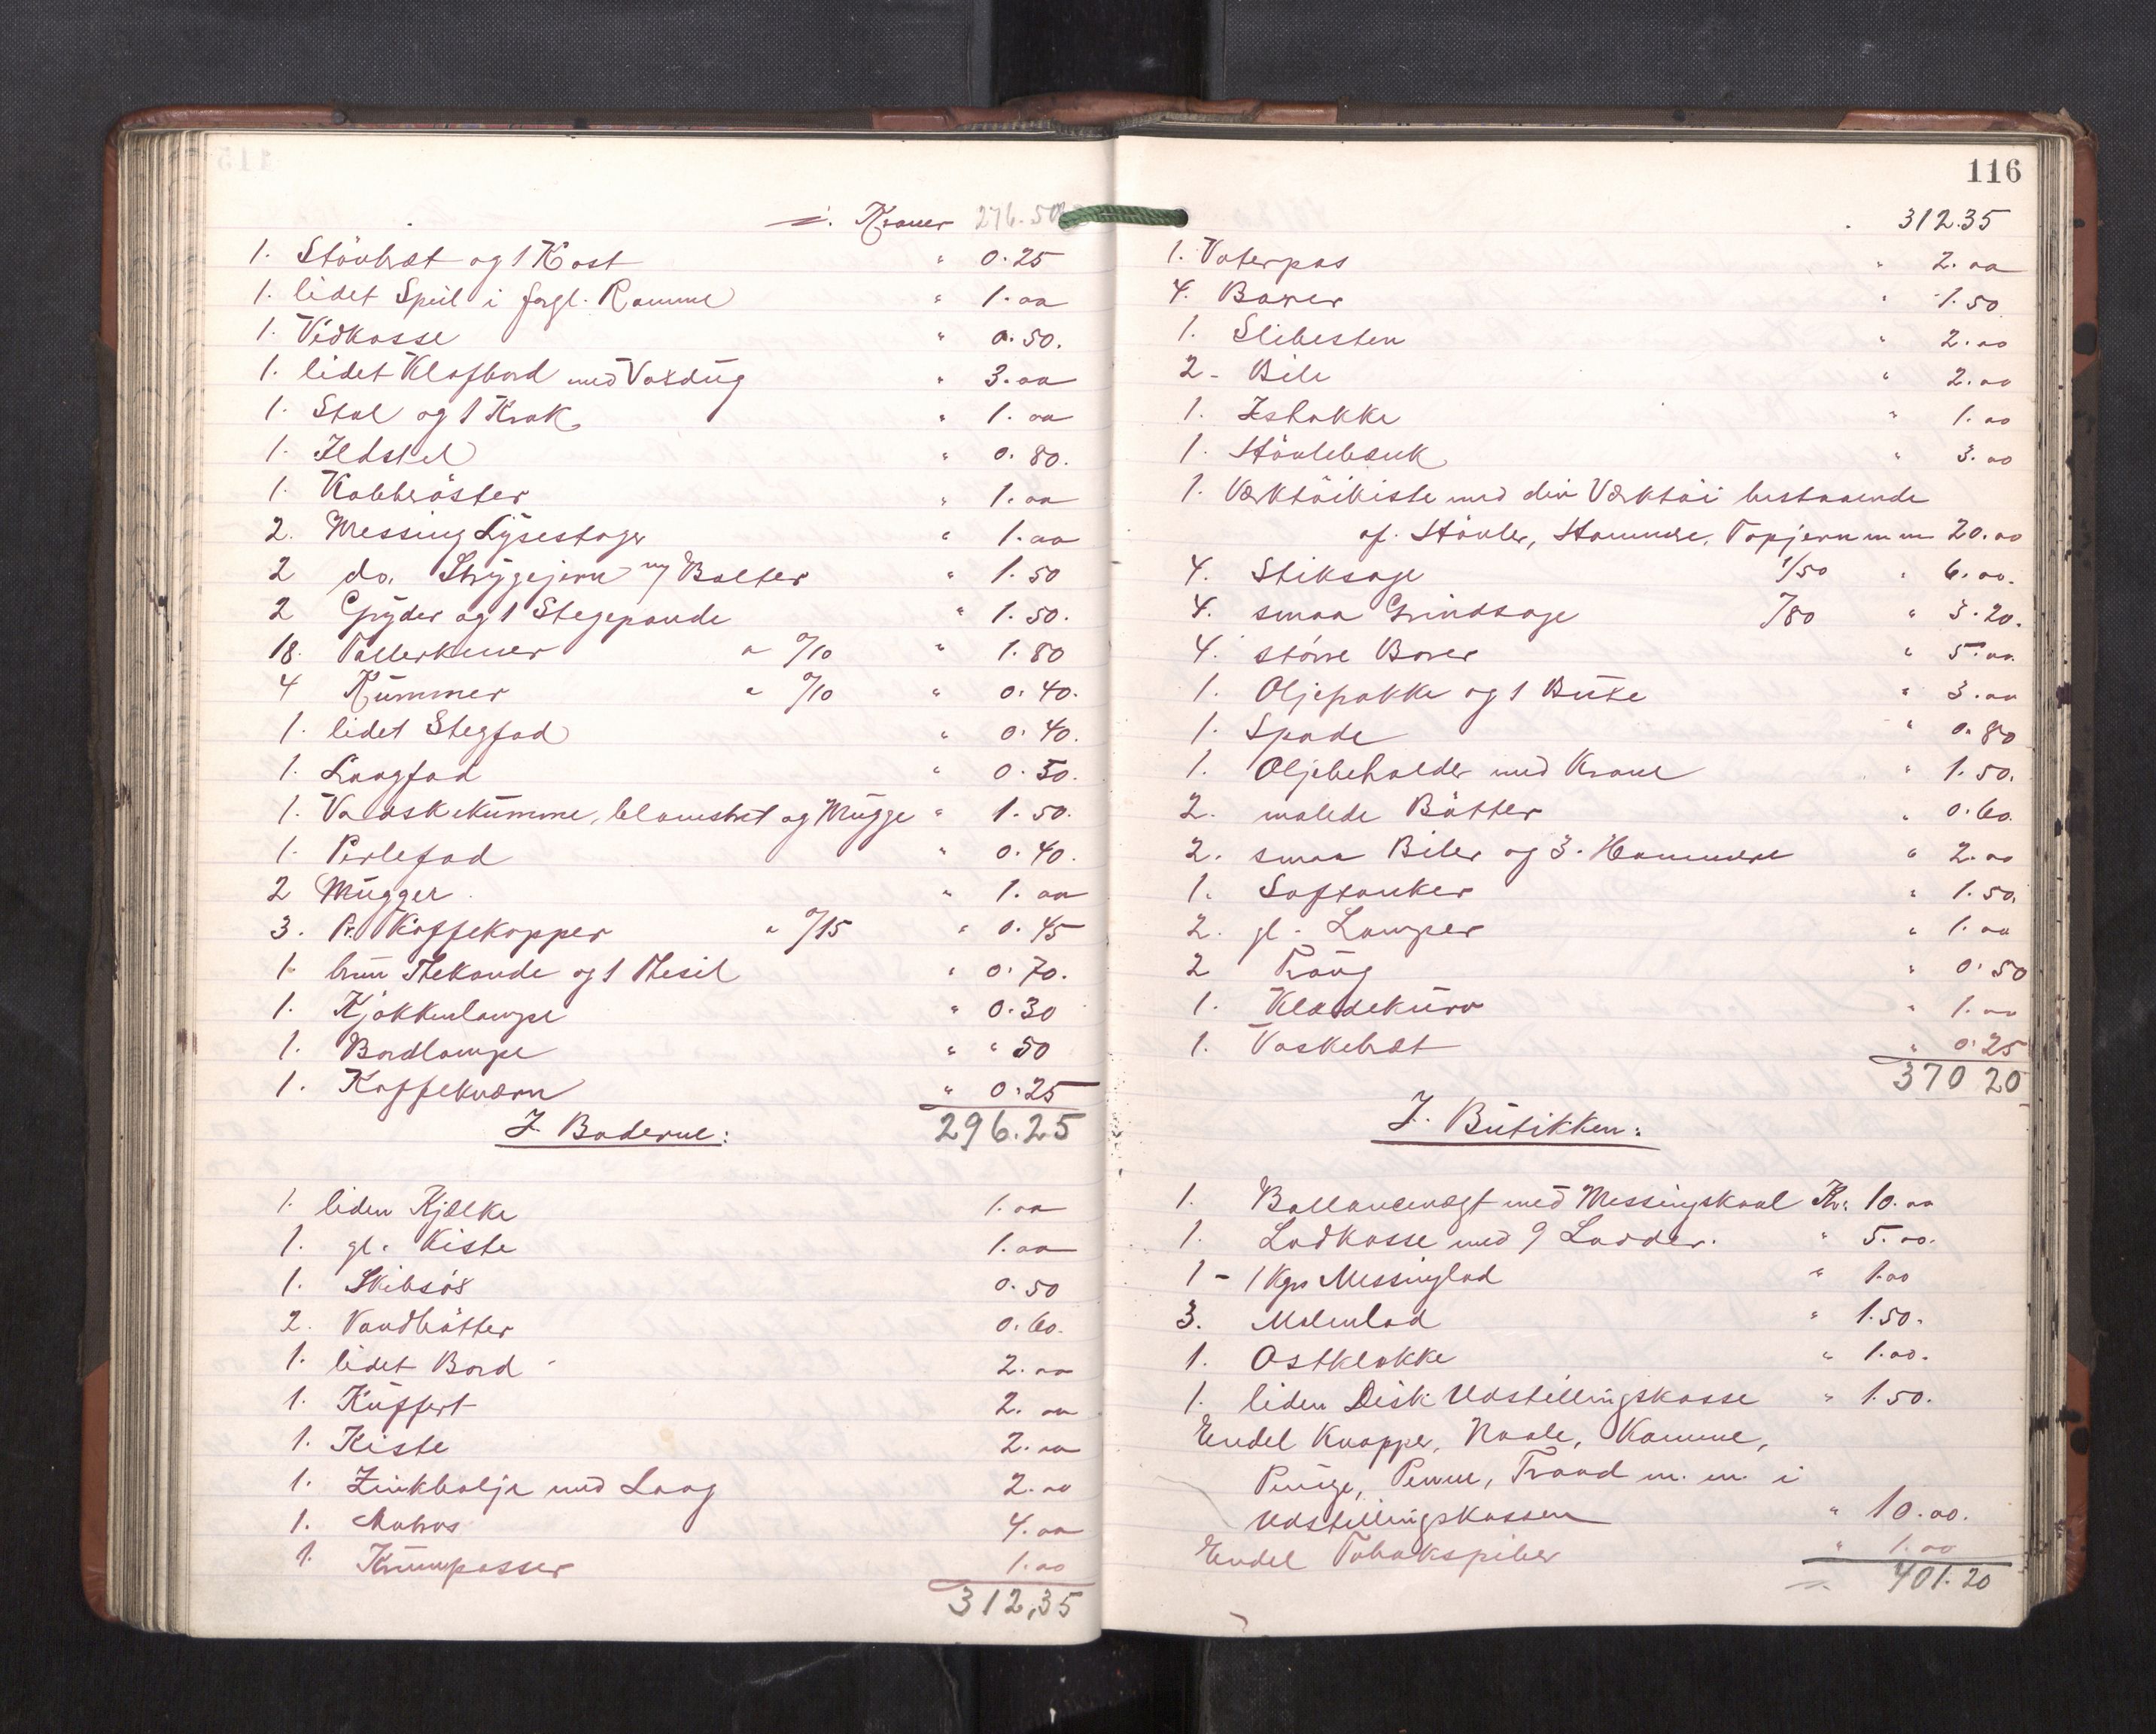 115
Kroner 276.50
1. Stövbræt og 1 Kost " 0.25
1. lidet Speil i forgl. Ramme " 1.00
1. Vedkasse " 0.50.
1. lidet Klafbord med Voxdug " 3.00
1. Stol og 1 Krak " 1.00
1. Ildskel " 0.80.
1. Kobberöster " 1.00
2. Messing Lysestager " 1.00
2 do. Strygejern m/ Bolter " 1.50
2 Gryder og 1 Stegepande " 1.50.
18. Tallerkener a 0/10 " 1.80
4 Kummer a 0/10 " 0.40.
1. lidet Stegfad " 0.40.
1. Laagfad " 0.50.
1. Vaskekumme, blomstret og Mugge " 1.50.
1. Perlefad " 0.40.
2 Mugger " 1.00
3. Pr. Kaffekopper a 0/15 " 0.45
1. brun Thekande og 1 Thesil " 0.70.
1. Kjøkkenlampe " 0.30
1. Bordlampe " " 50
1. Kaffekværn " 0.25
I Boderne: 296.25
1. liden Kjælke 1.00
1. gl. Kiste 1.00
1. Skibsöx 0.50
2. Vandbötter 0.60.
1. lidet Bord 2.00
1. Kuffert 2.00
1. Kiste 2.00
1. Zinkbalje med Laag 2.00
1. Madras 4.00
1. Krumpasser 1.00
312,35
116
312.35
1. Vaterpas " 2.00
4. Borer " 1.50
1. Slibesten " 2.00
2 - Bile " 2.00
1. Ishakke " 1.00
1. Hövlebænk " 3.00
1. Værktöikiste med div Værktöi bestaaende
af. Hövler, Hammere, Topjern m m 20.00
4. Stiksage 1/50 " 6.00.
4. smaa Grindsage 0/80 " 3.20.
4. större Borer " 5.00.
1. Oljefrakke og 1 Buxe " 3.00
1. Spade " 0.80
1. Oljebeholder med Krane " 1.50.
2. malede Bötter " 0.60.
2. smaa Biler og 3. Hammere " 2.00
1. Saftanker " 1.50.
2. gl. Lamper " 1.00
2 Traug " 0.50
1. Klædekurv " 1.00
1. Vaskebræt " 0.25
370 20
I. Butikken:
1. Ballancevægt med Messingskaal Kr. 10.00
1. Lodkasse med 9 Lodder. " 5.00.
1 - 1 Kgrs Messinglod " 1.00
3. Malmlod " 1.50.
1. Ostklokke " 1.00.
1. liden Disk Udstillingskasse " 1.50.
Endel Knapper, Naale, Kamme,
Punge, Penne, Traad m. m. i
Udstillingskassen " 10.00.
Endel Tobakspiber " 1.00
401.20